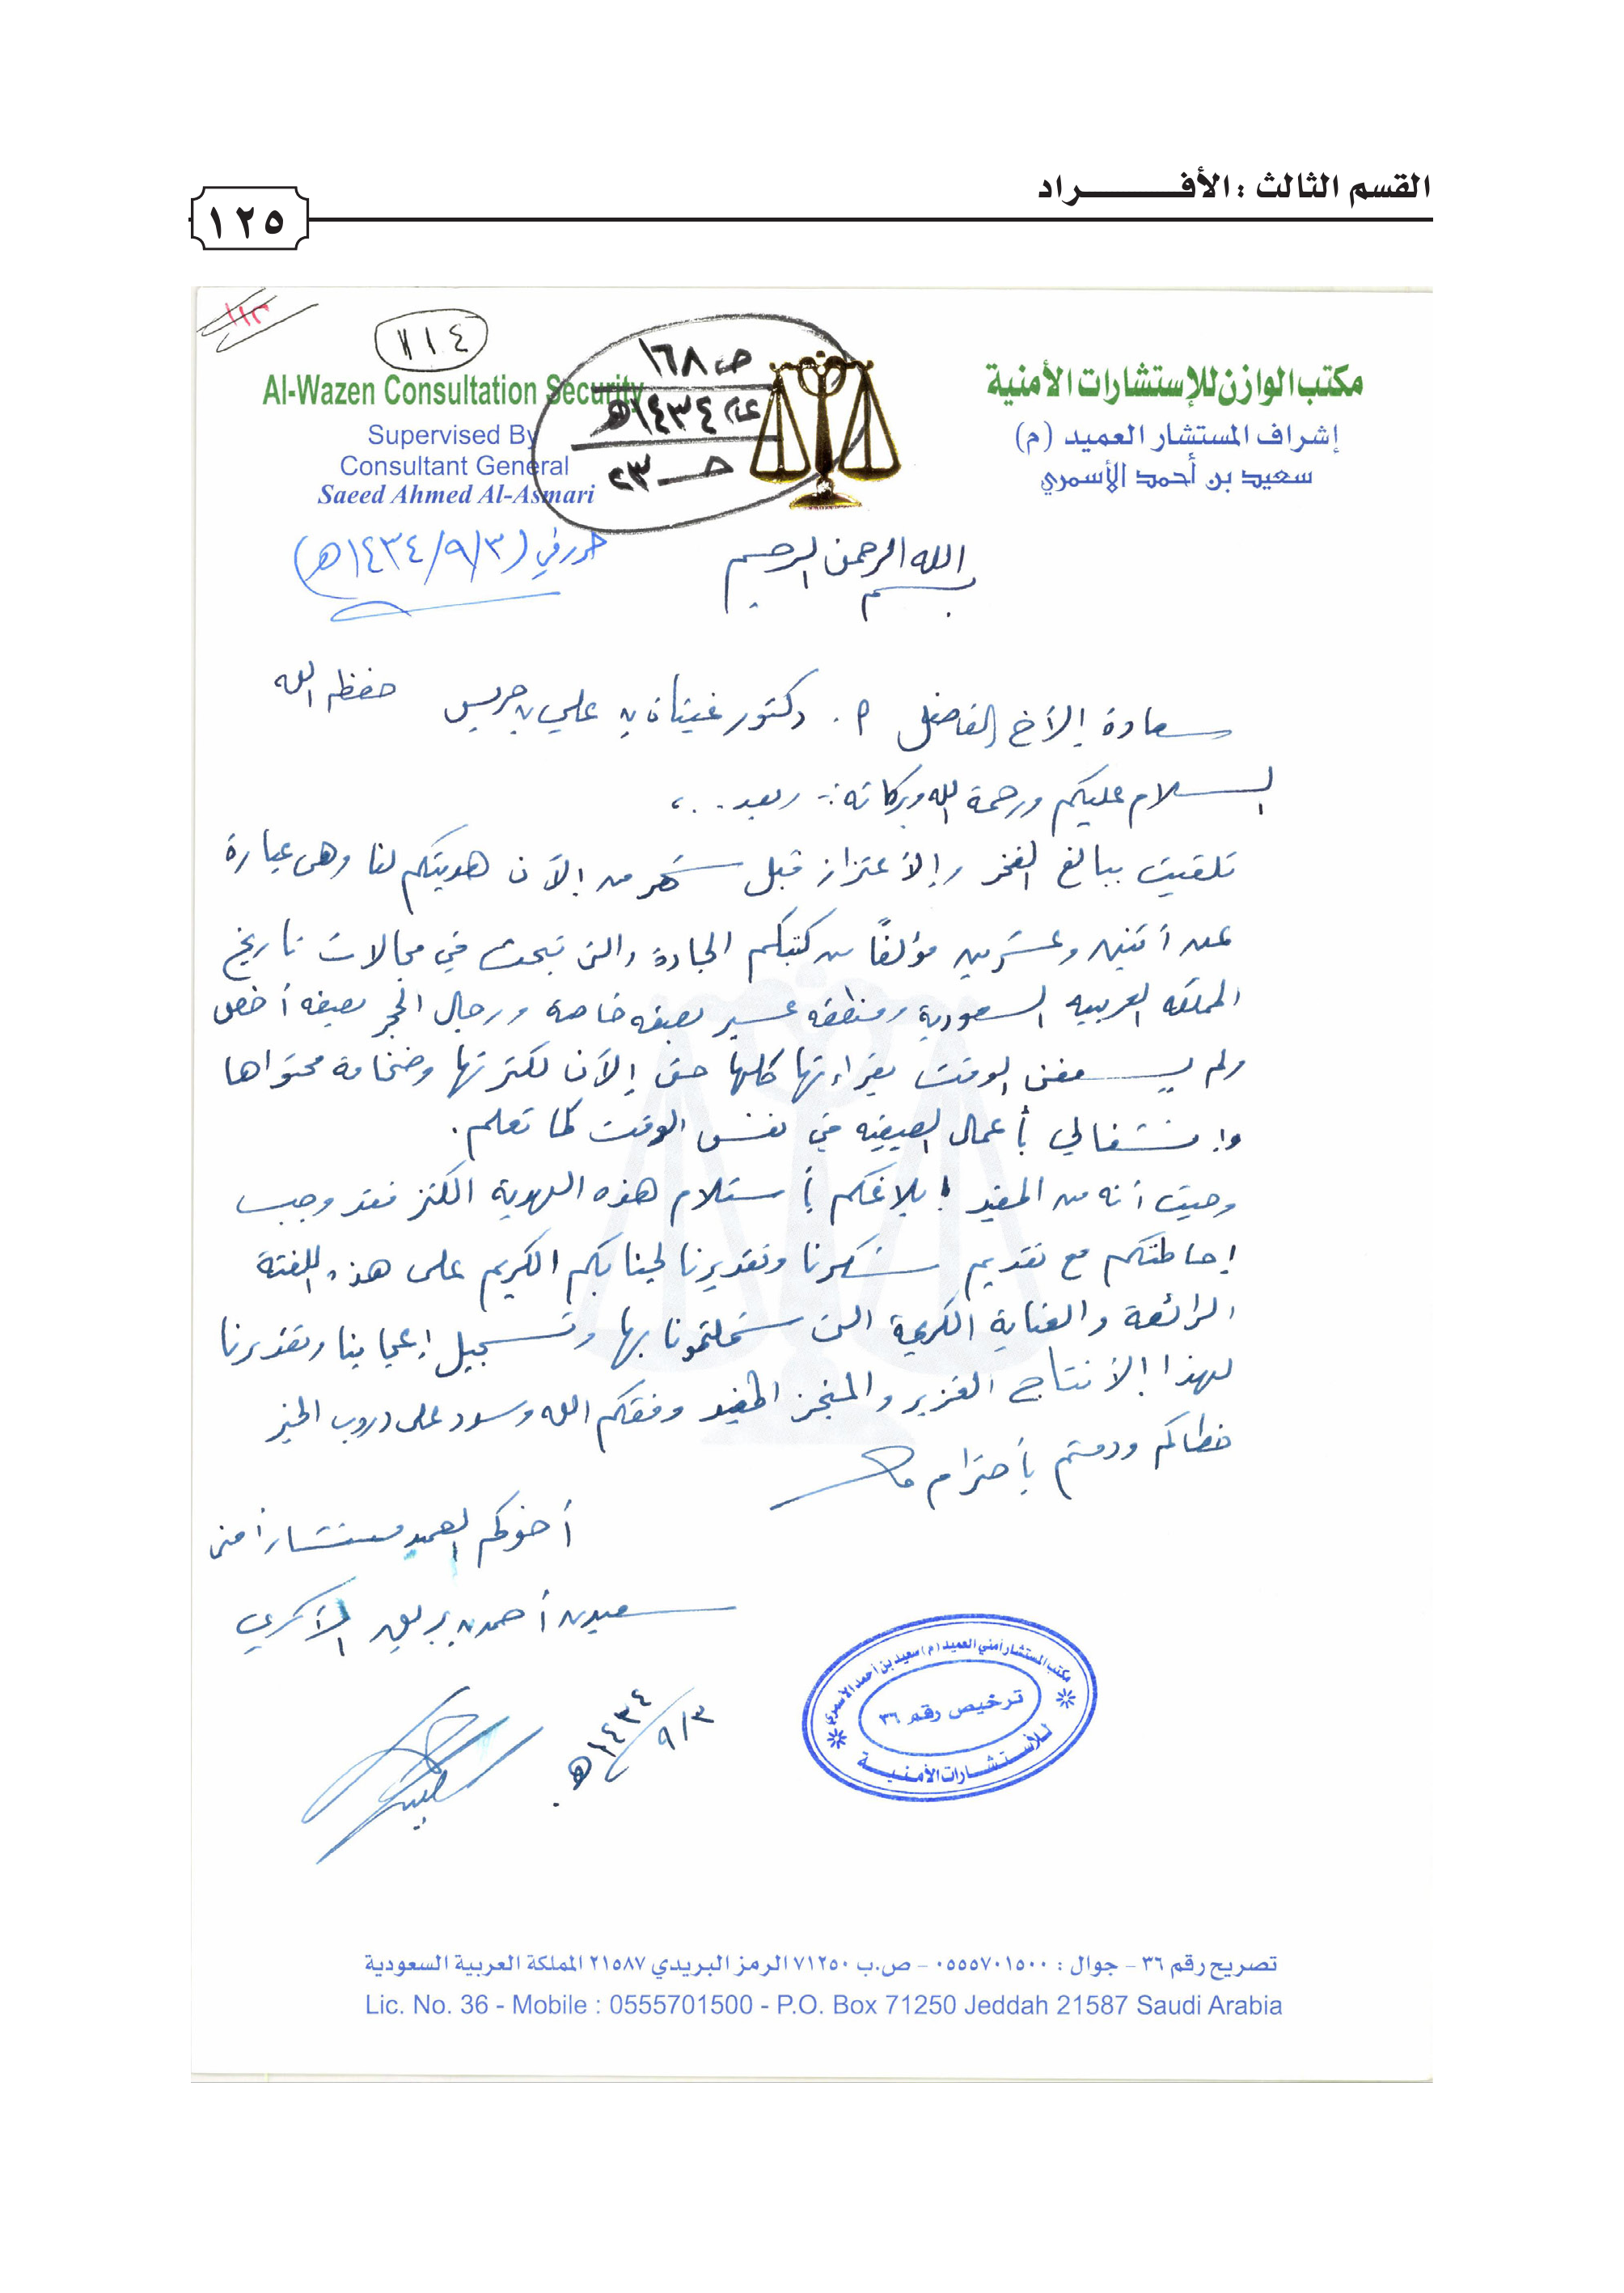 القسم الثالث : الأفـــــــــــراد
١٢٥
١١٣
٧١٤
ص ١٦٨
عام ١٤٣٤هـ
حـ ٢٣
Al-Wazen Consultation Security
Supervised By
Consultant General
Saeed Ahmed Al-Asmari
مكتب الوازن للإستشارات الأمنية
إشراف المستشار العميد (م)
سعيد بن أحمد الأسمري
حرر في (١٤٣٤/٩/٣هـ)
بسم الله الرحمن الرحيم
سعادة الأخ الفاضل أ. دكتور غيثان بن علي بن جريس حفظه الله
السلام عليكم ورحمة الله وبركاته :- وبعد . . ،
تلقيت ببالغ الفخر والأعتزاز قبل شهر من الآن هديتكم لنا وهى عبارة
عن أثنين وعشرين مؤلفاً من كتبكم الجادة والتى تبحث في مجالات تاريخ
المملكه العربيه السعودية ومنطقه عسير بصفه خاصه ورجال الحجر بصفه أخص
ولم يسعفنى الوقت بقراءتها كلها حتى الآن لكثرتها وضخامة محتواها
وإنشغالي بأعمال الصيفيه في نفس الوقت كما تعلم .
وحيث أنه من المفيد إبلاغكم بأستلام هذه الهدية الكنز فقد وجب
إحاطتكم مع تقديم شكرنا وتقديرنا لجنابكم الكريم على هذه اللفتة
الرائعة والعناية الكريمة التى شملتمونا بها وتسجيل إعجابنا وتقديرنا
لهذا الأنتاج الغزير والمنجز المفيد وفقكم الله وسدد على دروب الخير
خطاكم ودمتم بأحترام
أخوكم العميد مستشار أمنى
سعيد بن أحمد بن الأسمري
٩/٣
١٤٣٤هـ
مكتب المستشار أمني العميد (م) سعيد بن أحمد الأسمري
ترخيص رقم ٣٦
للأستشارات الأمنية
تصريح رقم ٣٦ - جوال : ٠٥٥٥٧٠١٥٠٠ - ص.ب ٧١٢٥٠ الرمز البريدي ٢١٥٨٧ المملكة العربية السعودية
Lic. No. 36 - Mobile : 0555701500 - P.O. Box 71250 Jeddah 21587 Saudi Arabia